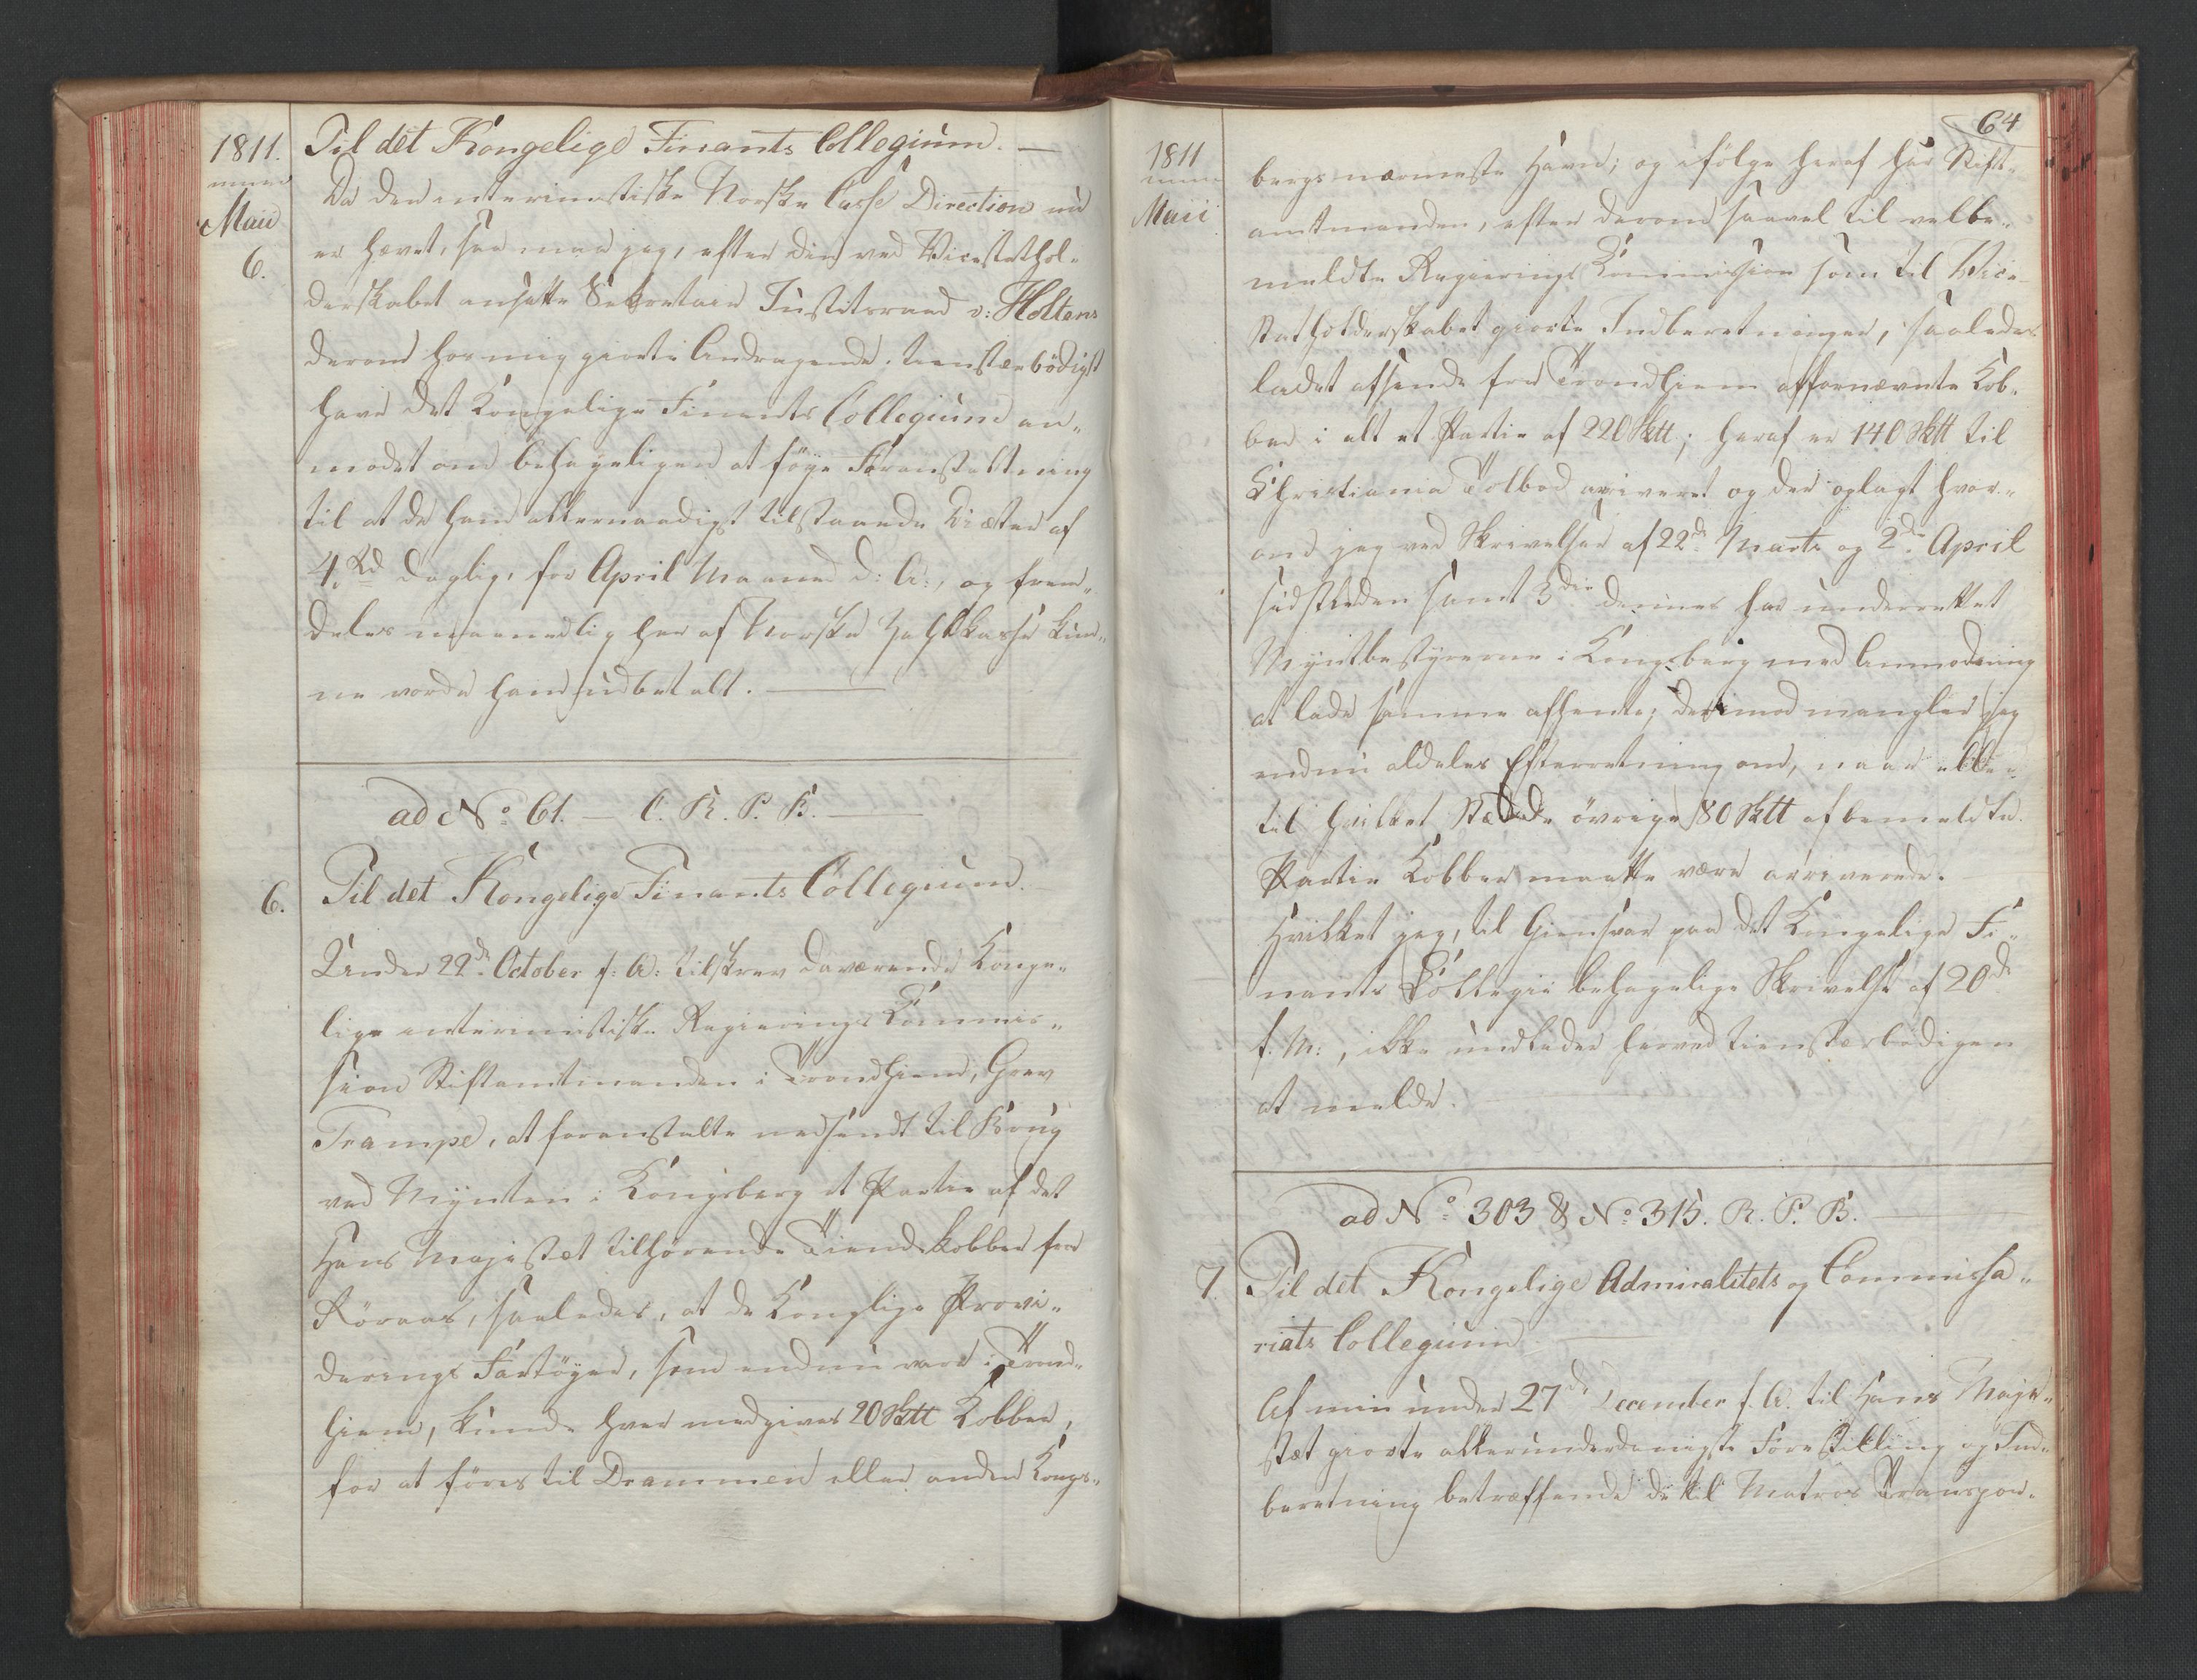 1811.
Maii
6.
Til det Kongelige Finants Collegium. —
Da den interimistiske Norske Casse Direction nu
er hævet, saa maa jeg, efter den ved Vicestathol„
derskabet ansatte Sekretair Justitsraad v: Holtens
derom for mig giorte Andragende, tienstærbødigst
have det Kongelige Finants Collegium an„
modet om behageligen at föye Foranstaltning
til at de ham allernaadigst tilstaaede Diæter af
4. Rd daglig, for April Maaned d: A:, og frem„
deles maanedlig her af Norske Zahlkasse kun„
ne vorde ham udbetalt. —
ad No 61. — C. R. P. B. —
6.
Til det Kongelige Finants Collegium.
Under 22de October f: A: tilskrev daværende Konge„
lige interimistiske Regierings Commis„
sion Stiftamtmanden i Trondhiem, Grev
Trampe, at foranstalte nedsendt til Brug
ved Mynten i Kongsberg et Partie af det
Hans Majestæt tilhørende Tiende Kobber fra
Röraas, saaledes, at de Konglige Provi„
derings Fartöyer, som endnu vare i Trond„
hiem, kunde hver medgives 20 Sktt Kobber,
for at föres til Drammen eller anden Kongs„
64
1811
Maii
bergs nærmeste Havn; og ifölge heraf har Stift„
amtmanden, efter derom saavel til velbe„
meldte Regierings Commission som til Vice
Statholderskabet giorte Indberetninger, saaledes
ladet afsende fra Trondhiem affornævnte Kob„
ber i alt et Partie af 220 Sktt; heraf er 140 Sktt til
Christiania Tolbod ariveret og der oplagt hvor„
om jeg ved Skrivelser af 22de Marts og 2de April
sidstleden samt 3die dennes har underrettet
Myntbestyrerne i Kongsberg med Anmodning
at lade samme afhente; derimod mangler jeg
endnu aldeles Efterretning om, naar eller
til hvilket Sted de övrige 80 Sktt af bemeldte
Partie Kobber maatte være arriverede.
Hvilket jeg, til Giensvar paa det Kongelige Fi„
nants Collegii behagelige Skrivelse af 20de
f. M:, ikke undlader herved tienstærbödigen
at melde.
ad No 303 & No 315. R. P. B. —
7.
Til det Kongelige Admiralitets og Commissa„
riats Collegium —
Af min under 27de December f. A. til Hans Maje„
stæt giorte allerunderdanigste Forestilling og Ind„
beretning betræffende de til Matros Transpor„